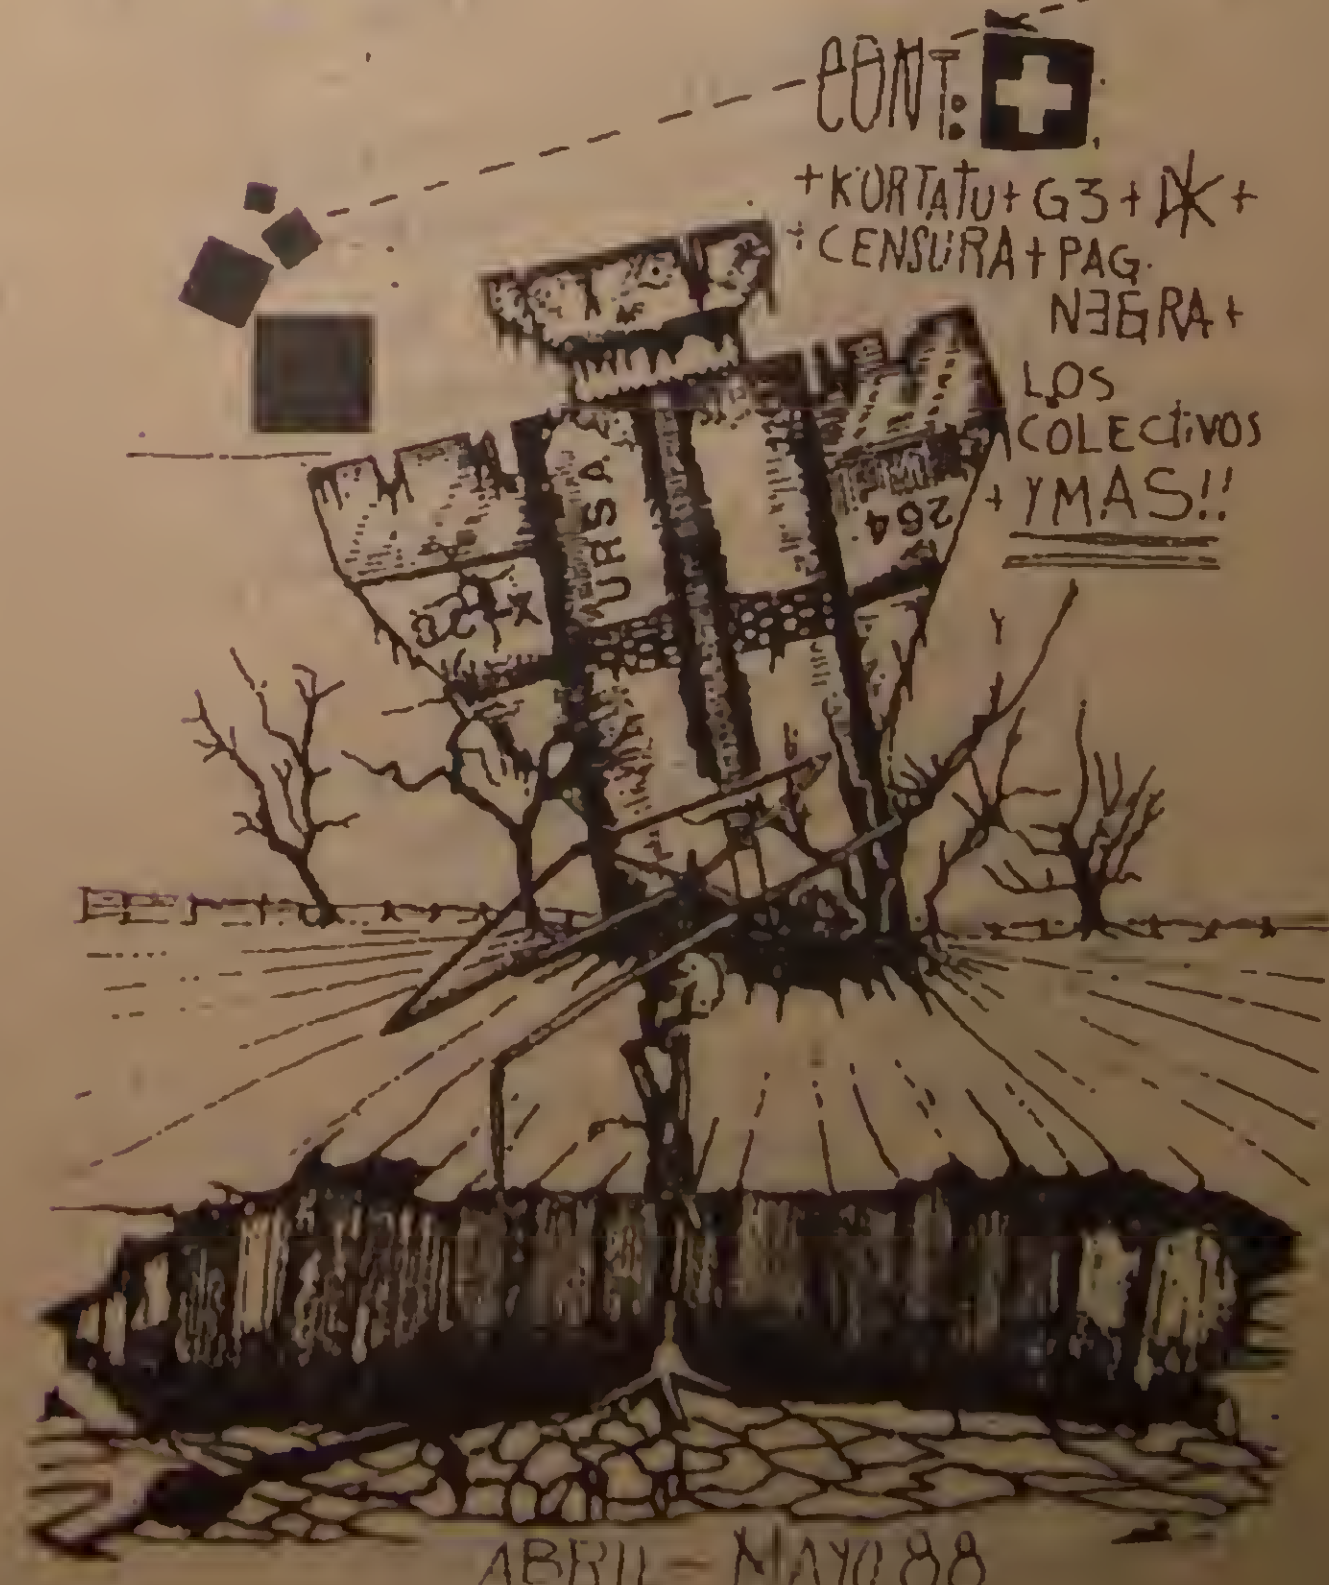 CONT:
+KORTATU+ G3+ DK +
+CENSURA+PAG.
NEGRA+
LOS
COLECTIVOS
+ YMAS!!
URSA
264
ABRIL - MAYO 88